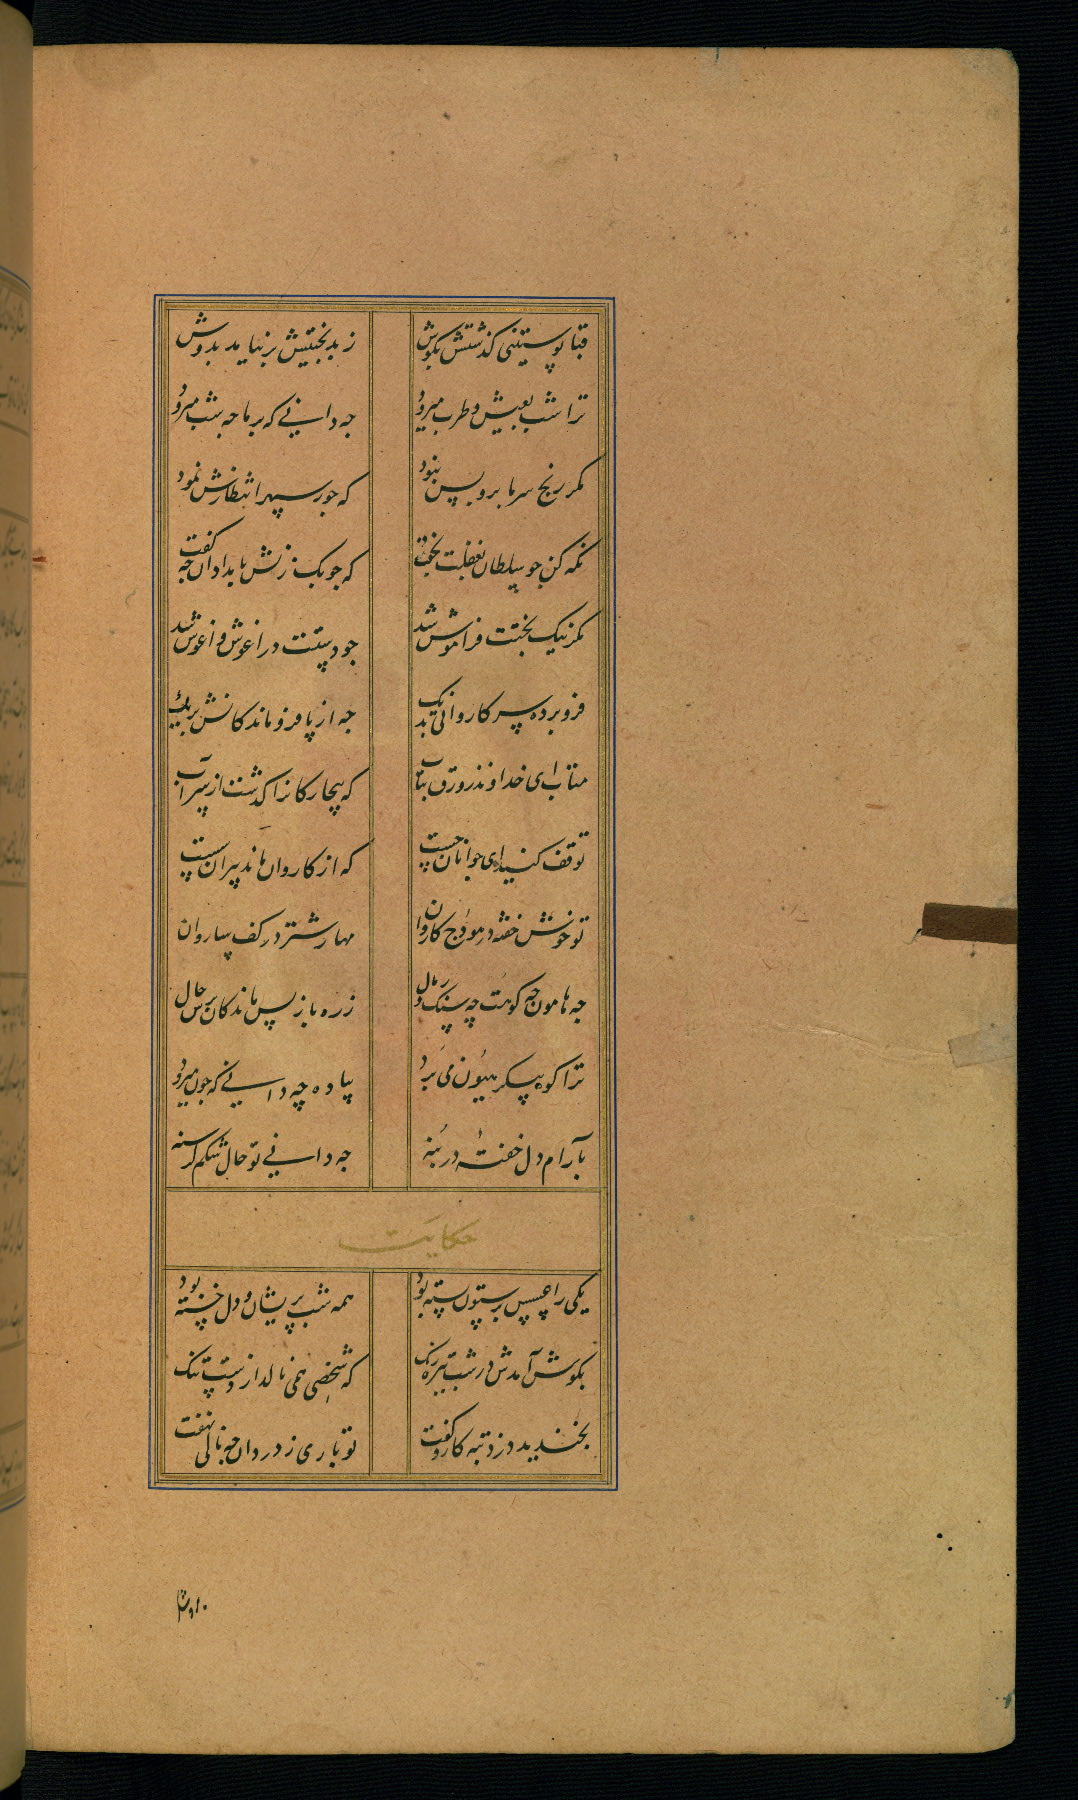 قبا پوستینی گذشتش بگوش ز بدبختیش بر نیامد بدوش
ترا شب بعیش و طرب میرود جه دانی که بر ما جه شب میرود
مکر رنج سرما برو بس نبود که جور سپهر انتظارش نمود
نکه کن جو سلطان بغفلت بخفت که جوبک زنش بامدادان جه کفت
مکر نیک بختت فراموش شد جو دستت در اغوش اغوش شد
فرو برده سر کاروانی بدیک جه از پا فرو ماندکانش بریک
متاب ای خداوند زورق بر آب که بیچارکانرا کذشت از سر آب
توقف کنید ای جوانان چست که از کاروانند پیران سست
تو خوش خفته در هودج کاروان مهار شتر در کف ساروان
چه هامون چه کوهت چه سنک و رمال ز ره باز پس ماندکان پرس حال
ترا کوه پیکر هیون می برد پیاده چه دانی که جون میرود
بآرام دل خفته در بنه جه دانی تو حال شکم کرسنه
حکایت
یکی را عسس بر ستون بسته بود همه شب پریشان و دل خسته بود
بکوش آمدش در شب تیره رنک که شخصی همی نالد از دست تنک
بخندید دزد تبه کار و کفت تو باری ز دردان جه نالی نهفت